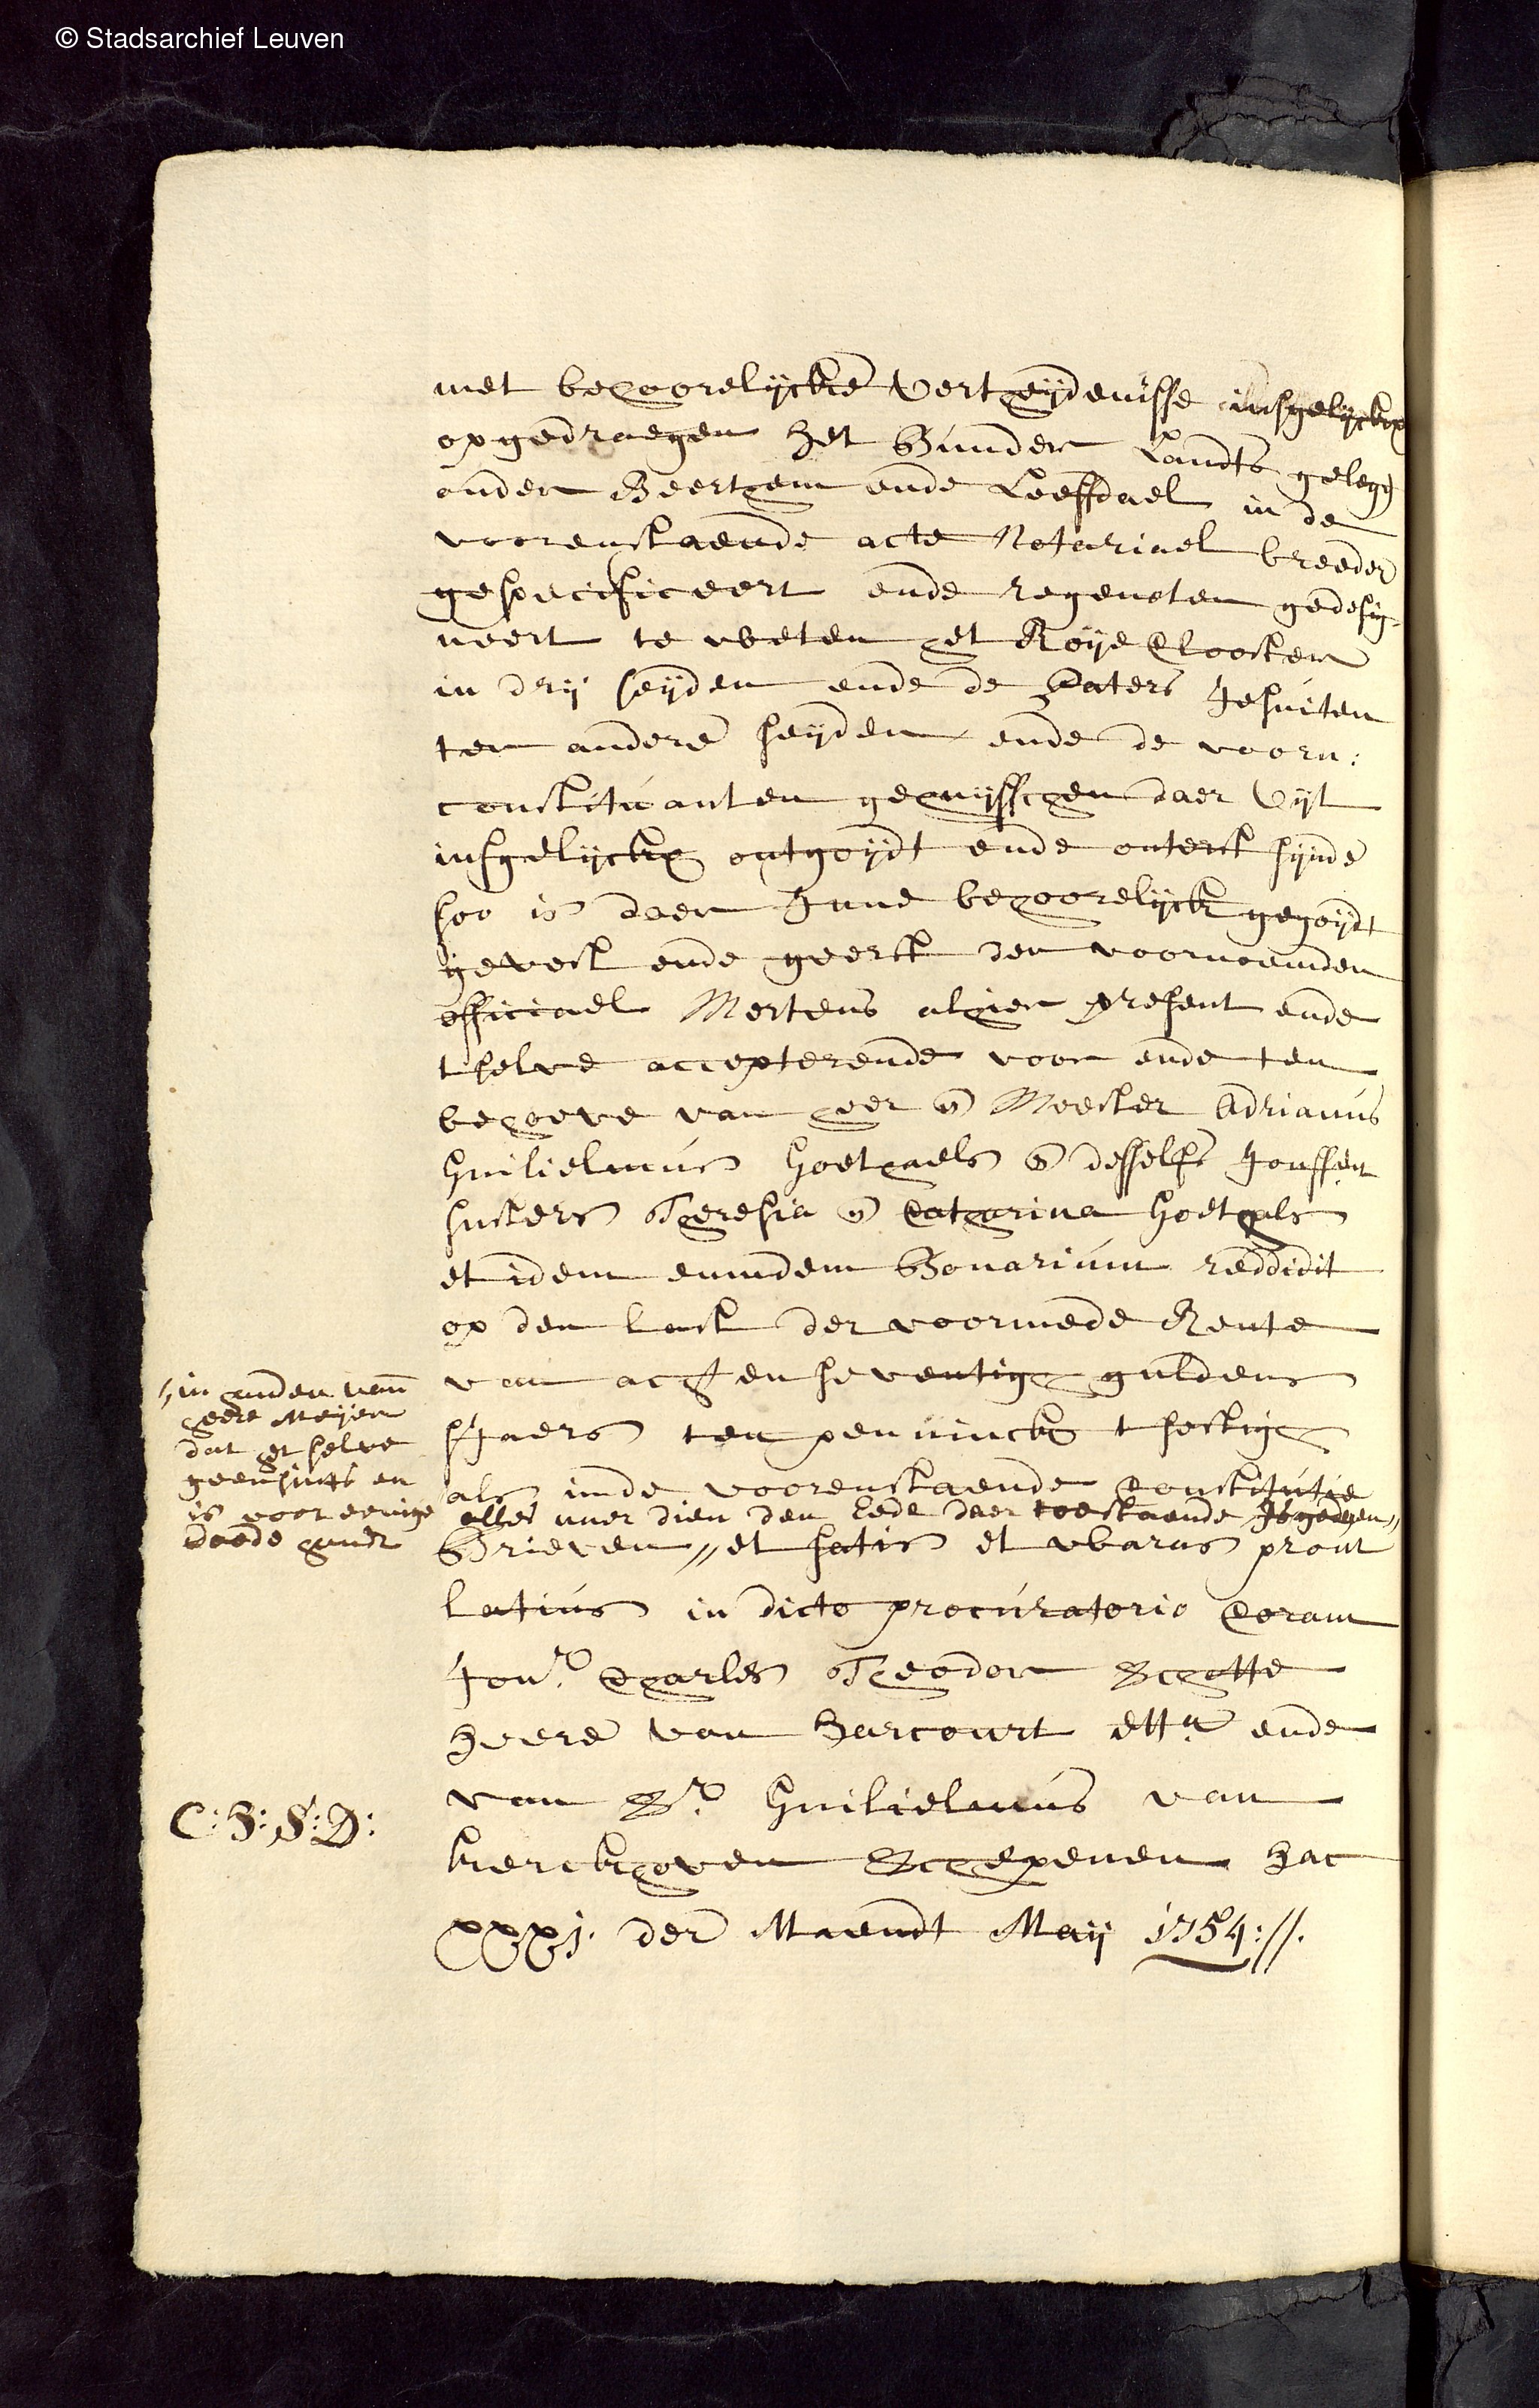 © Stadsarchief Leuven
met behoorelijcke Verthijdenisse insgelijckx
opgedraegen het Bunder Landts gelegen
onder Beerthem ende Leeffdael in de
voorenstaende acte Notariael breeder
gespecificeert ende regenoten gedesig-
neert te weten het Roije Clooster
in drij seijden ende de Paters Jesuiten
ter andere seijden ende de voorn:
constituanten gewijsschen daer Uijt
insgelijckx ontgoijdt ende onterft sijnde
soo is daer Inne behoorelijck gegoijdt
gevest ende geerft den voornoemden
officiael Mertens alhier present ende
t selve accepterende voor ende ten
behoeve van heer en Meester Adrianus
Guilielmus Goethaels en desselfs Jouffen
susters Theresia en Catharina Goethals
et idem eumdem Bonarium reddidit
op den last der voormede Rente
van acht en seventigh guldens
s'Jaers ten penninck t sestigh
als inde voorenstaende Constitutie
alles naer dien den Eede daer toestaende
Brieven // et satis et waras prout
latius in dicto procuratorio Coram
Jor. Charles Theodor Schotte
heere van Harcourt etta. ende
van Sr. Guilielmus van
kerckhoven Schepenen hac
xxxj. der Maendt Maij 1754://.
// in handen van
heere Meijer
dat het selve
geensints en
is voor eenige
doode handt
C: H: S: D: